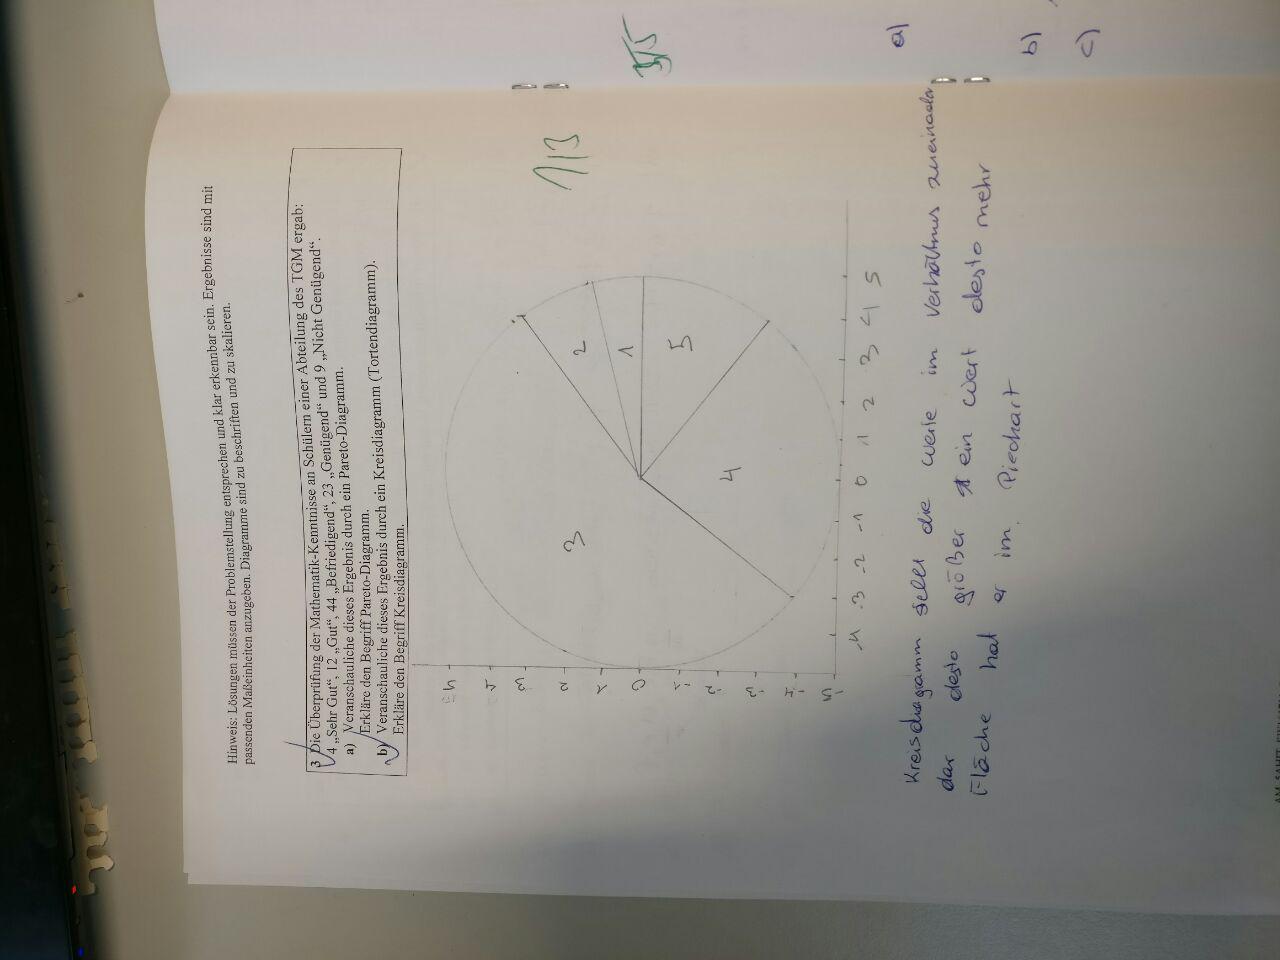 Hinweis: Lösungen müssen der Problemstellung entsprechen und klar erkennbar sein. Ergebnisse sind mit
passenden Maßeinheiten anzugeben. Diagramme sind zu beschriften und zu skalieren.
3 Die Überprüfung der Mathematik-Kenntnisse an Schülern einer Abteilung des TGM ergab:
4 „Sehr Gut“, 12 „Gut“, 44 „Befriedigend“, 23 „Genügend“ und 9 „Nicht Genügend“.
a) Veranschauliche dieses Ergebnis durch ein Pareto-Diagramm.
Erkläre den Begriff Pareto-Diagramm.
b) Veranschauliche dieses Ergebnis durch ein Kreisdiagramm (Tortendiagramm).
Erkläre den Begriff Kreisdiagramm.
5
4
3
2
1
0
-1
-2
-3
-4
-5
3
2
1
5
4
-4 -3 -2 -1 0 1 2 3 4 5
1/3
3/5
Kreisdiagramm stellt die Werte im Verhältnus zueinader
dar desto größer ein Wert desto mehr
Fläche hat er im Piechart
a)
b)
c)